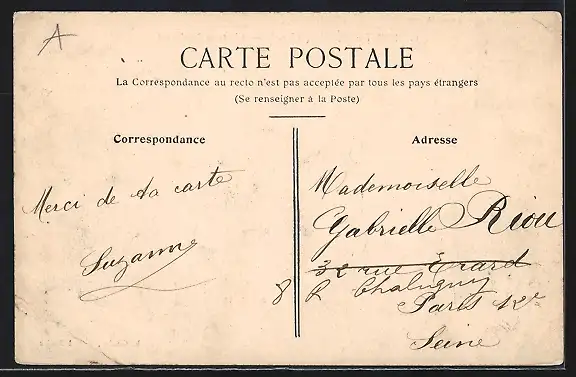 A
CARTE POSTALE
La Correspondance au recto n'est pas acceptée par tous les pays étrangers
(Se renseigner à la Poste)
Correspondance
Adresse
Merci de ta carte
Suzanne
Mademoiselle
Gabrielle Riou
32 rue Erard
8 R Chaligny
Paris 12e
Seine